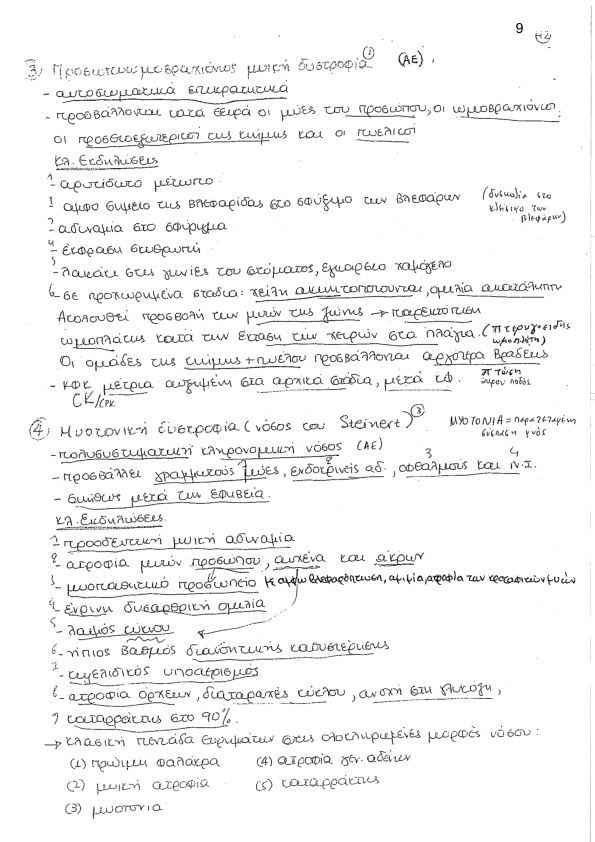 9
42
③ Προσωποωμοβραχιόνιος μυική δυστροφία ① (ΑΕ),
- αυτοσωματικά επικρατητικά
- προσβάλλονται κατά σειρά οι μύες του προσώπου, οι ωμοβραχιόνιοι,
οι προσθιοεξωτερικοί της κνήμης και οι πυελικοί
Κλ. Εκδηλώσεις
1 - αρυτίδωτο μέτωπο
1 αμφο σημείο της βλεφαρίδας στο σφύξιμο των βλεφάρων (δυσκολία στο κλείσιμο των βλεφάρων)
3 - αδυναμία στο σφύριγμα
4 - έκφραση σκυθρωπή
5 - λακάκι στις γωνίες του στόματος, εγκάρσιο χαμόγελο
6 - σε προχωρημένα στάδια: χείλη ακινητοποιούνται, ομιλία ακατάληπτη
Ακολουθεί προσβολή των μυών της ζώνης → παρεκτόπιση
ωμοπλάτης κατά την έκταση των χειρών στα πλάγια. (πτερυγοειδής ωμοπλάτη)
Οι ομάδες της κνήμης + πυέλου προσβάλλονται αργότερα βραδέως
- ΚΦΚ μέτρια αυξημένη στα αρχικά στάδια, μετά κφ. πτώση άκρου ποδός
CK/CPK
④ Μυοτονική δυστροφία (νόσος του Steinert) ③ ΜΥΟΤΟΝΙΑ = παρατεταμένη σύσπαση μυός
- πολυσυστηματική κληρονομική νόσος (ΑΕ)
- προσβάλλει γραμμωτούς μύες, ενδοκρινείς αδ., οφθαλμούς και Ν.Σ.
- συνήθως μετά την εφηβεία.
Κλ. Εκδηλώσεις
1 - προοδευτική μυική αδυναμία
2 - ατροφία μυών προσώπου, αυχένα και άκρων
3 - μυοπαθητικό προσωπείο με αμφω βλεφαρόπτωση, αμιμία, ατροφία των κροταφικών μυών
4 - ένρινη δυσαρθρική ομιλία
5 - λαιμός κύκνου
6 - ήπιος βαθμός διανοητικής καθυστέρησης
7 - κυψελιδικός υποαερισμός
8 - ατροφία όρχεων, διαταραχές κύκλου, ανοχή στη γλυκόζη,
9 καταρράκτης στο 90%.
→ κλασική πεντάδα ευρημάτων στις ολοκληρωμένες μορφές νόσου:
(1) πρώιμη φαλάκρα (4) ατροφία γεν. αδένων
(2) μυική ατροφία (5) καταρράκτης
(3) μυοτονία